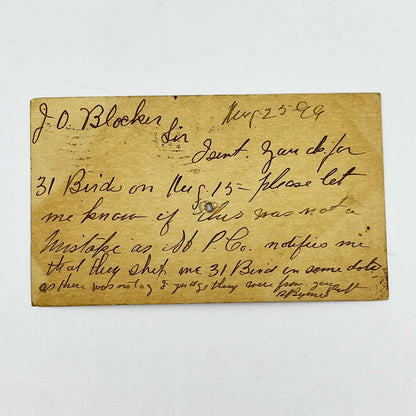 J. O. Blocker Aug 25-99
Sir
I sent you ck for
31 Bird on Aug 15- please let
me know if this was not a
mistake as P. Co. notifies me
that they ship me 31 Bird on same date
as there was no tag I judge they were from you